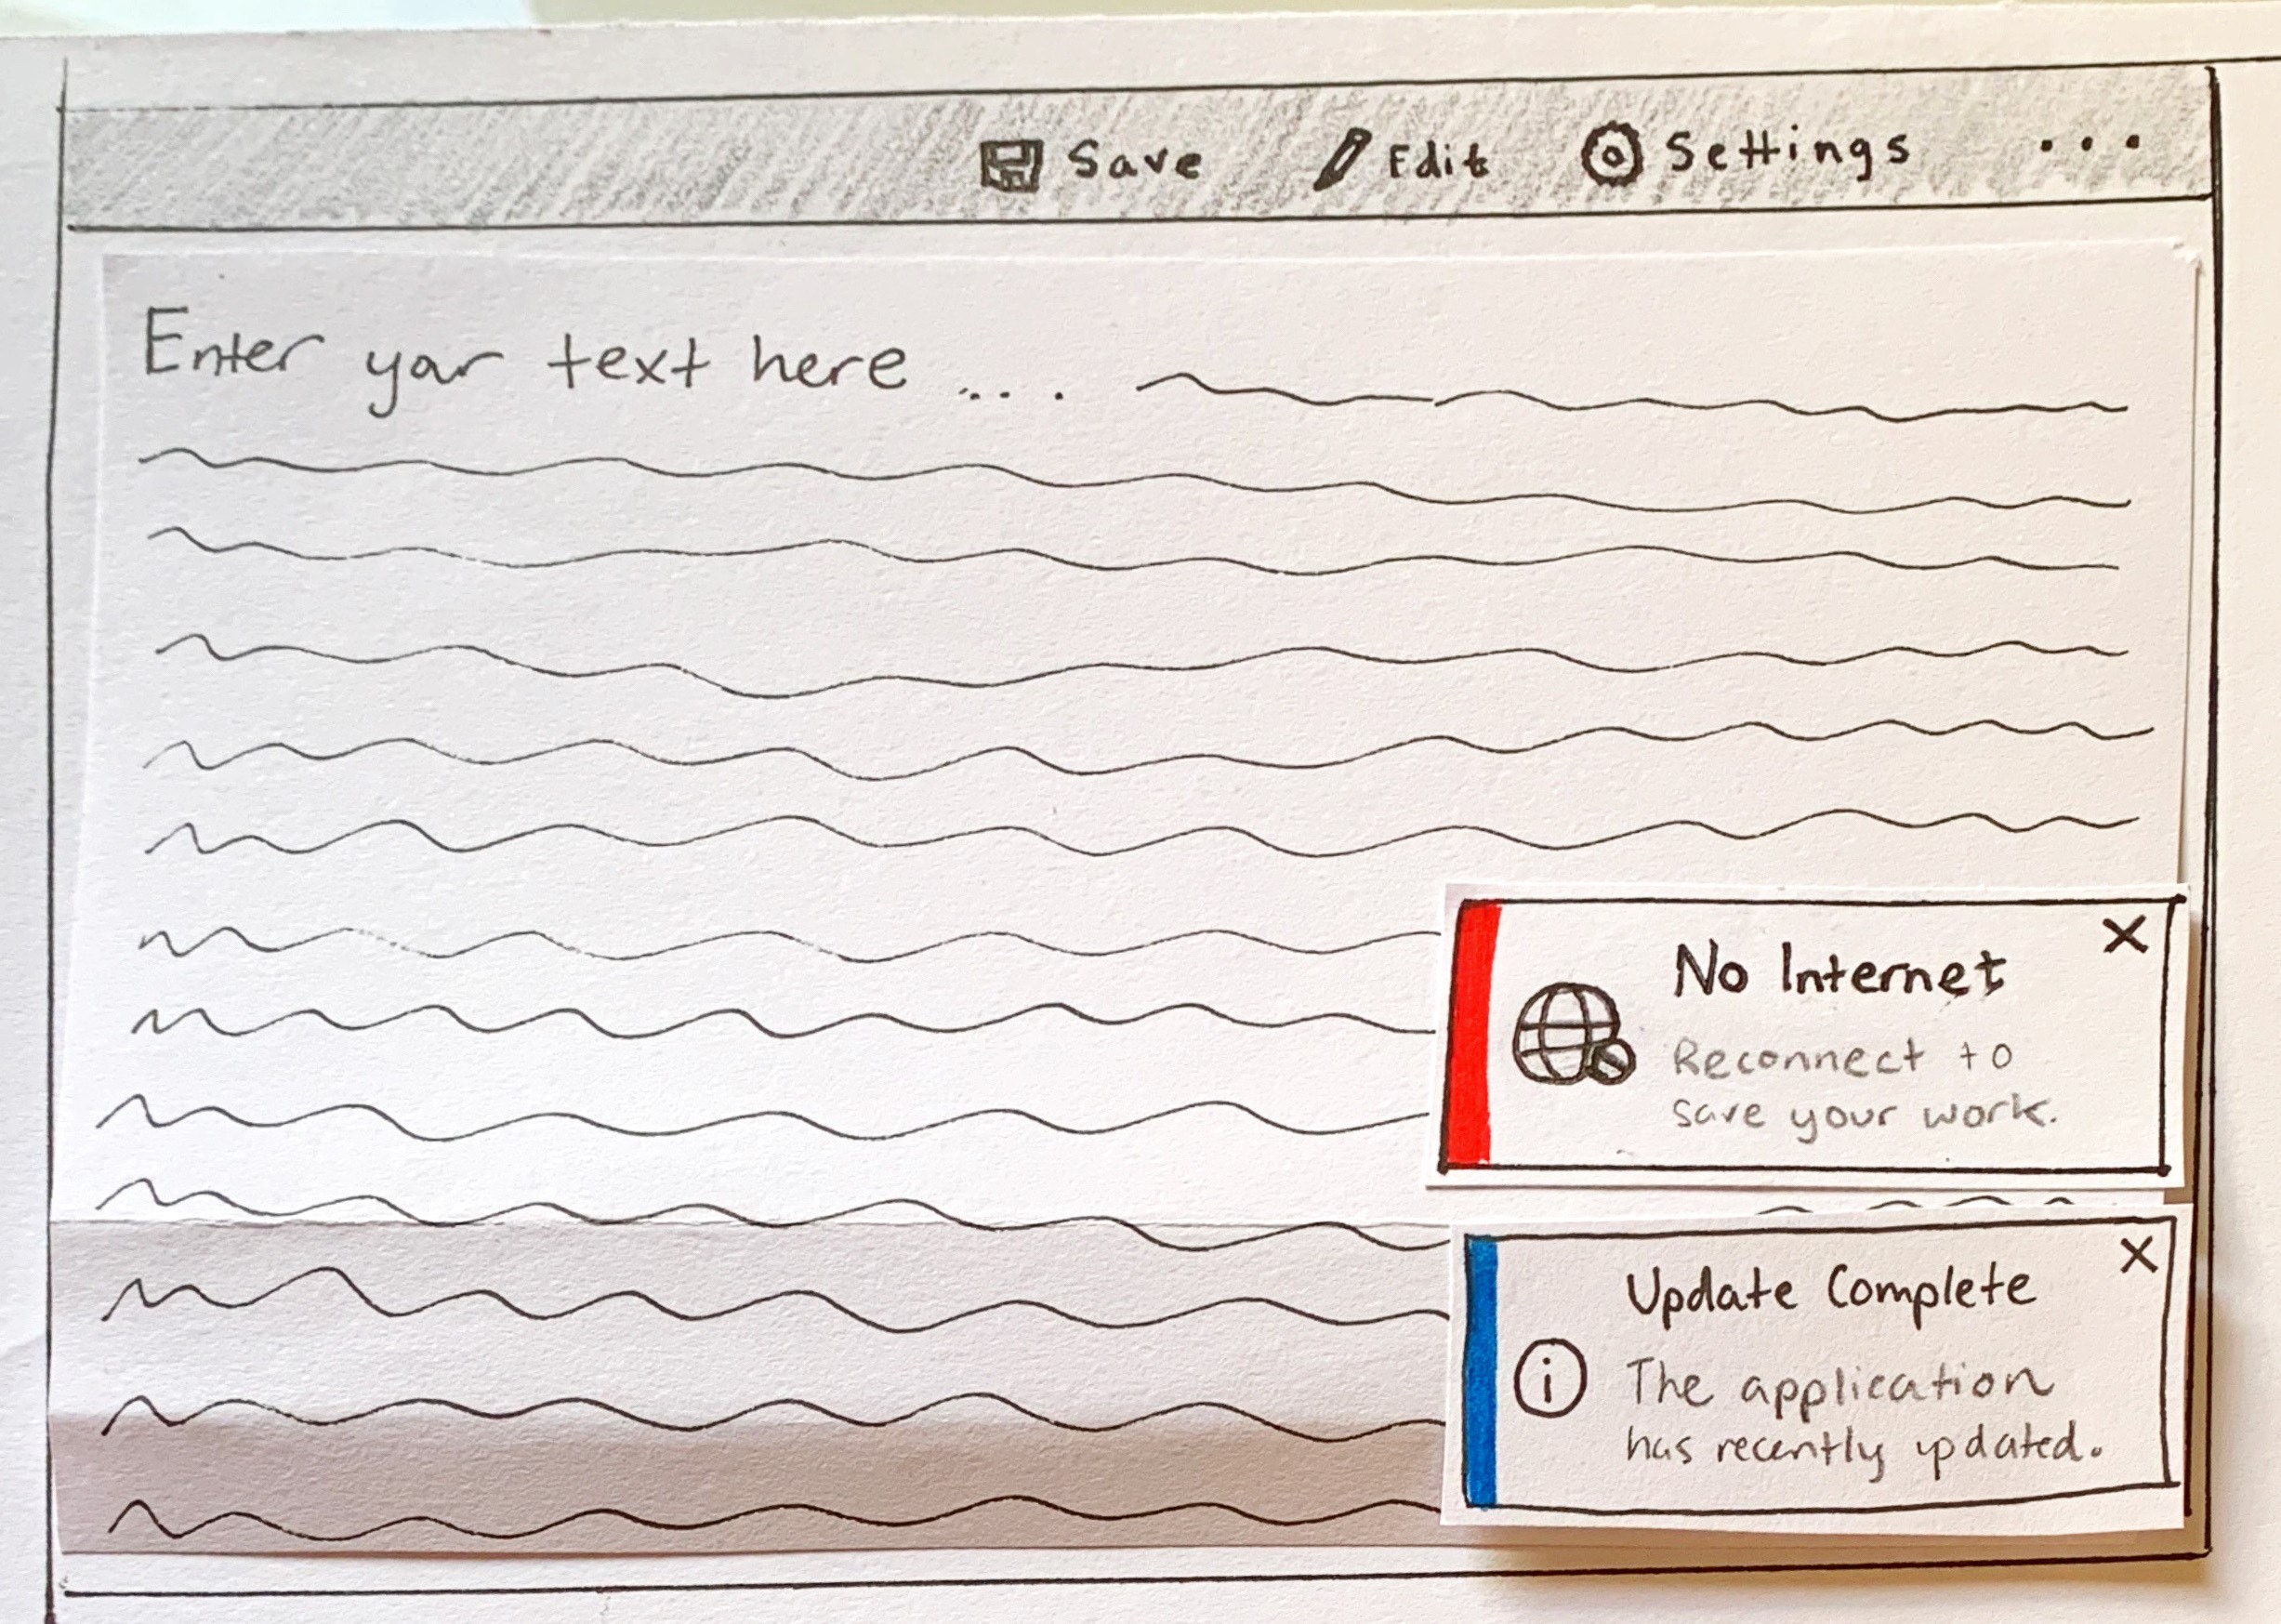 Save Edit Settings ...
Enter your text here ...
No Internet X
Reconnect to
save your work.
Update Complete X
i The application
has recently updated.